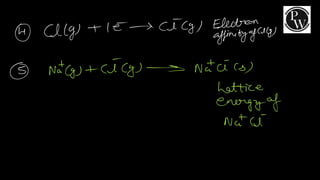 ④ Cl(g) + 1e⁻ → Cl⁻(g) Electron affinity of Cl(g)
⑤ Na⁺(g) + Cl⁻(g) → Na⁺Cl⁻(s)
Lattice
energy of
Na⁺Cl⁻
P
W